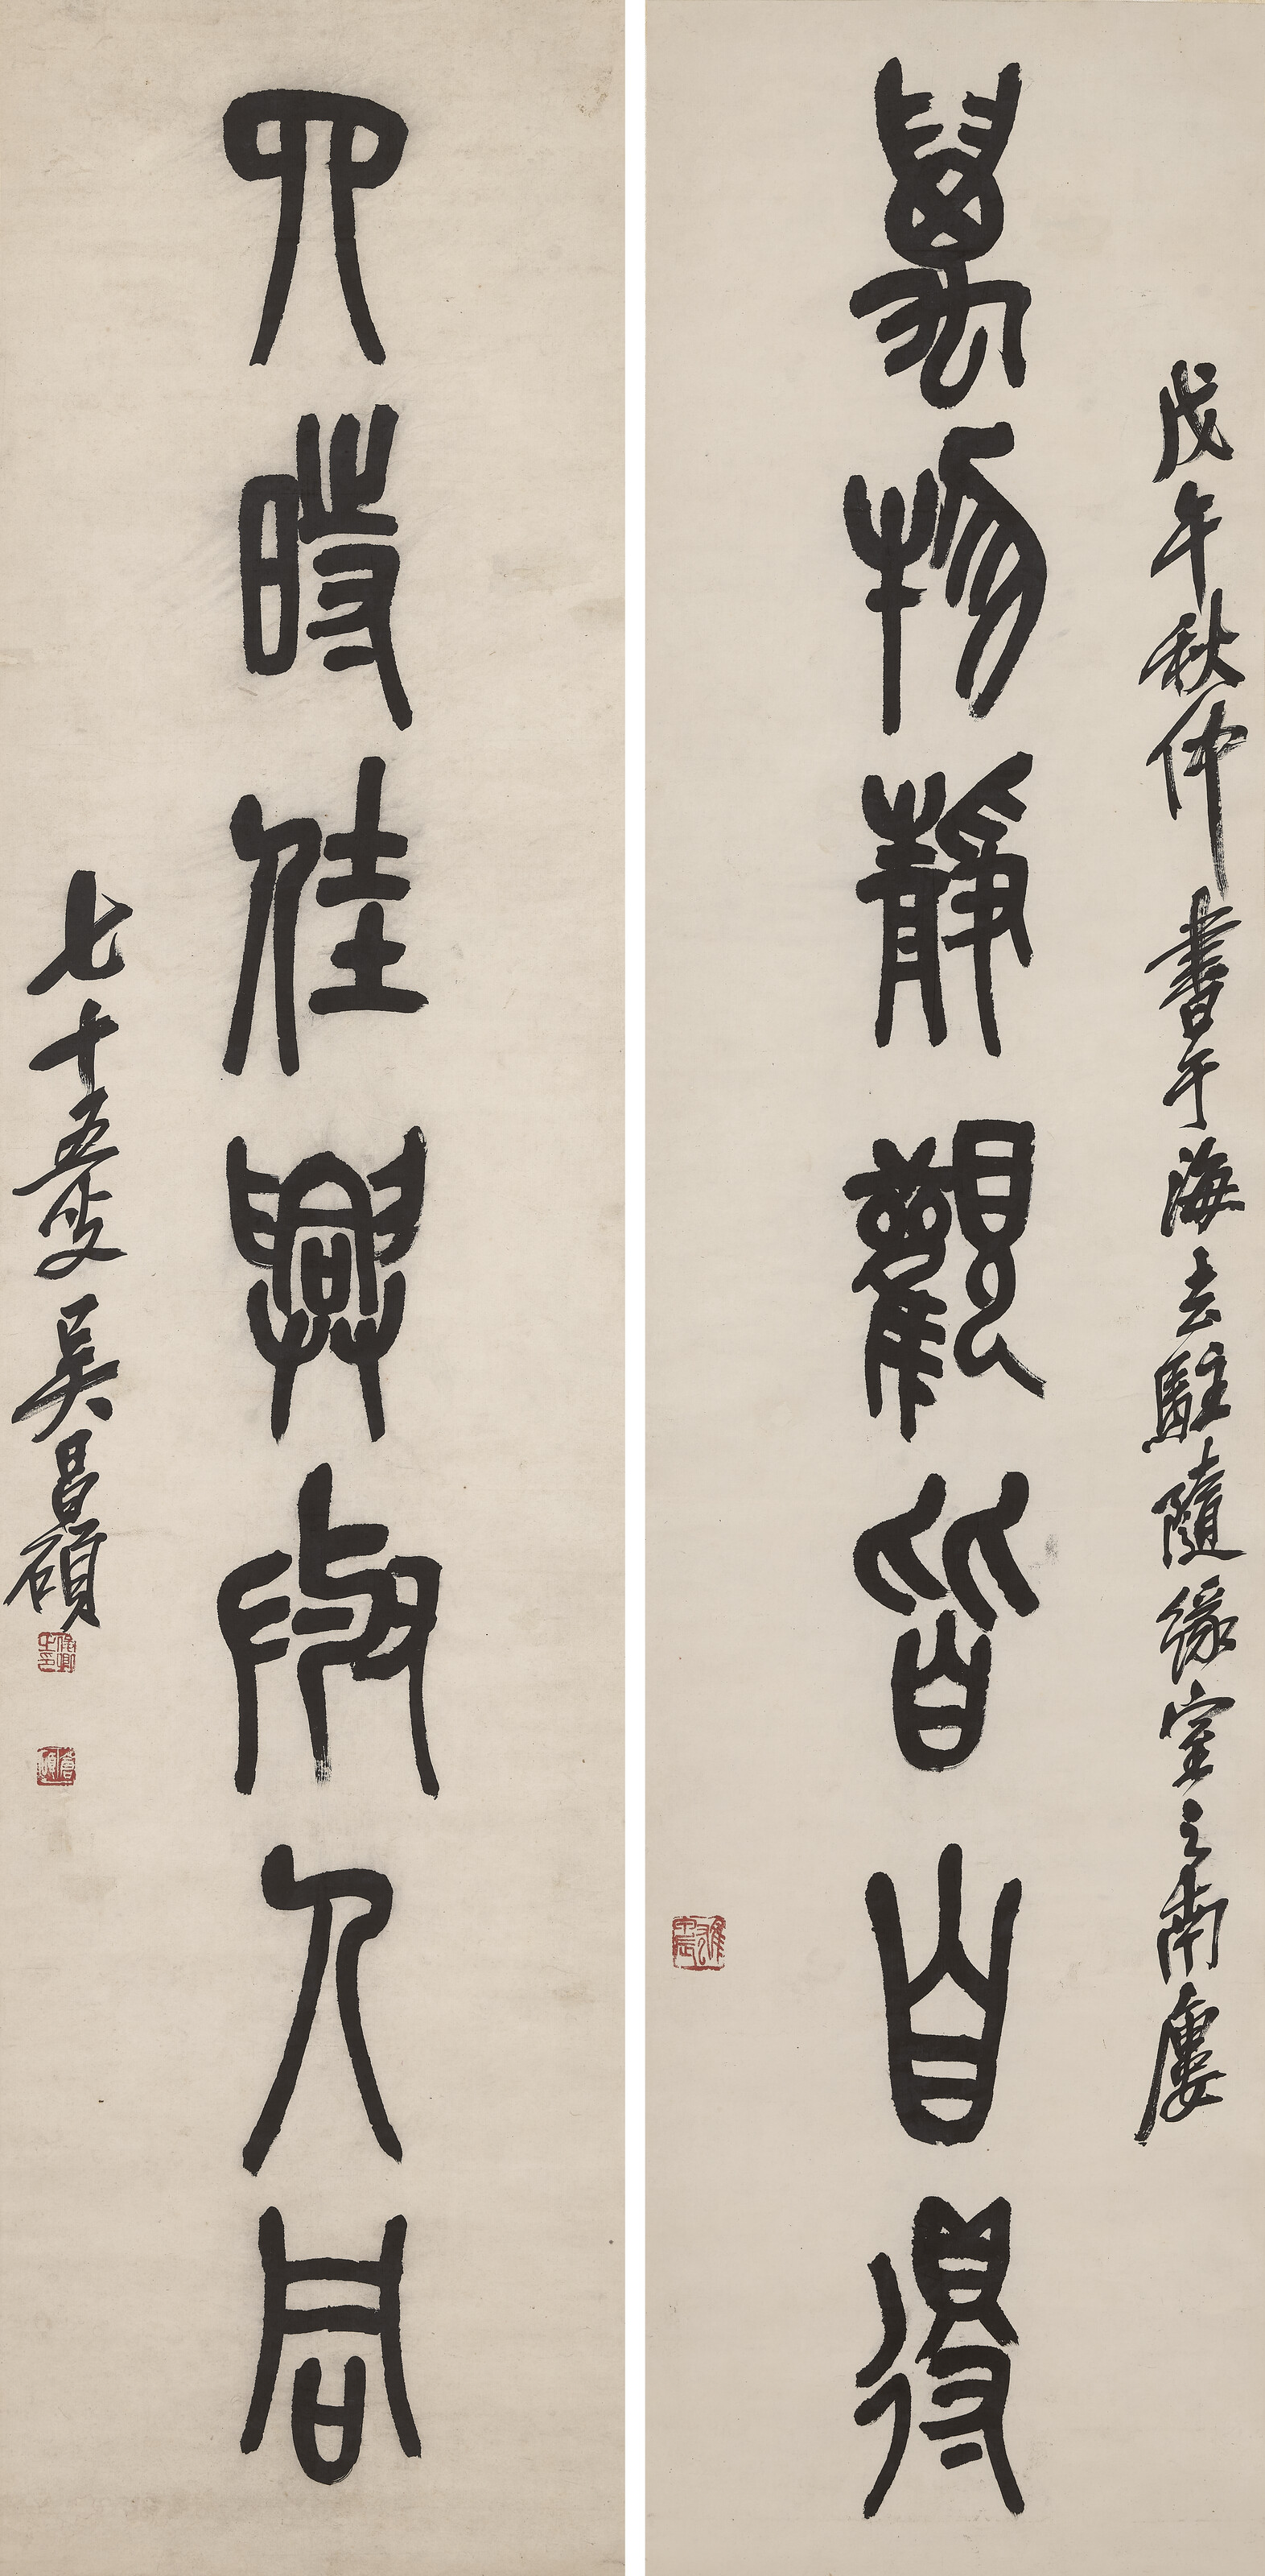 戊午秋仲書于海去駐隨緣室之南廔
萬物靜觀皆自得
雄甲辰
四時佳興與人同
七十五叟吳昌碩
俊卿之印
倉碩